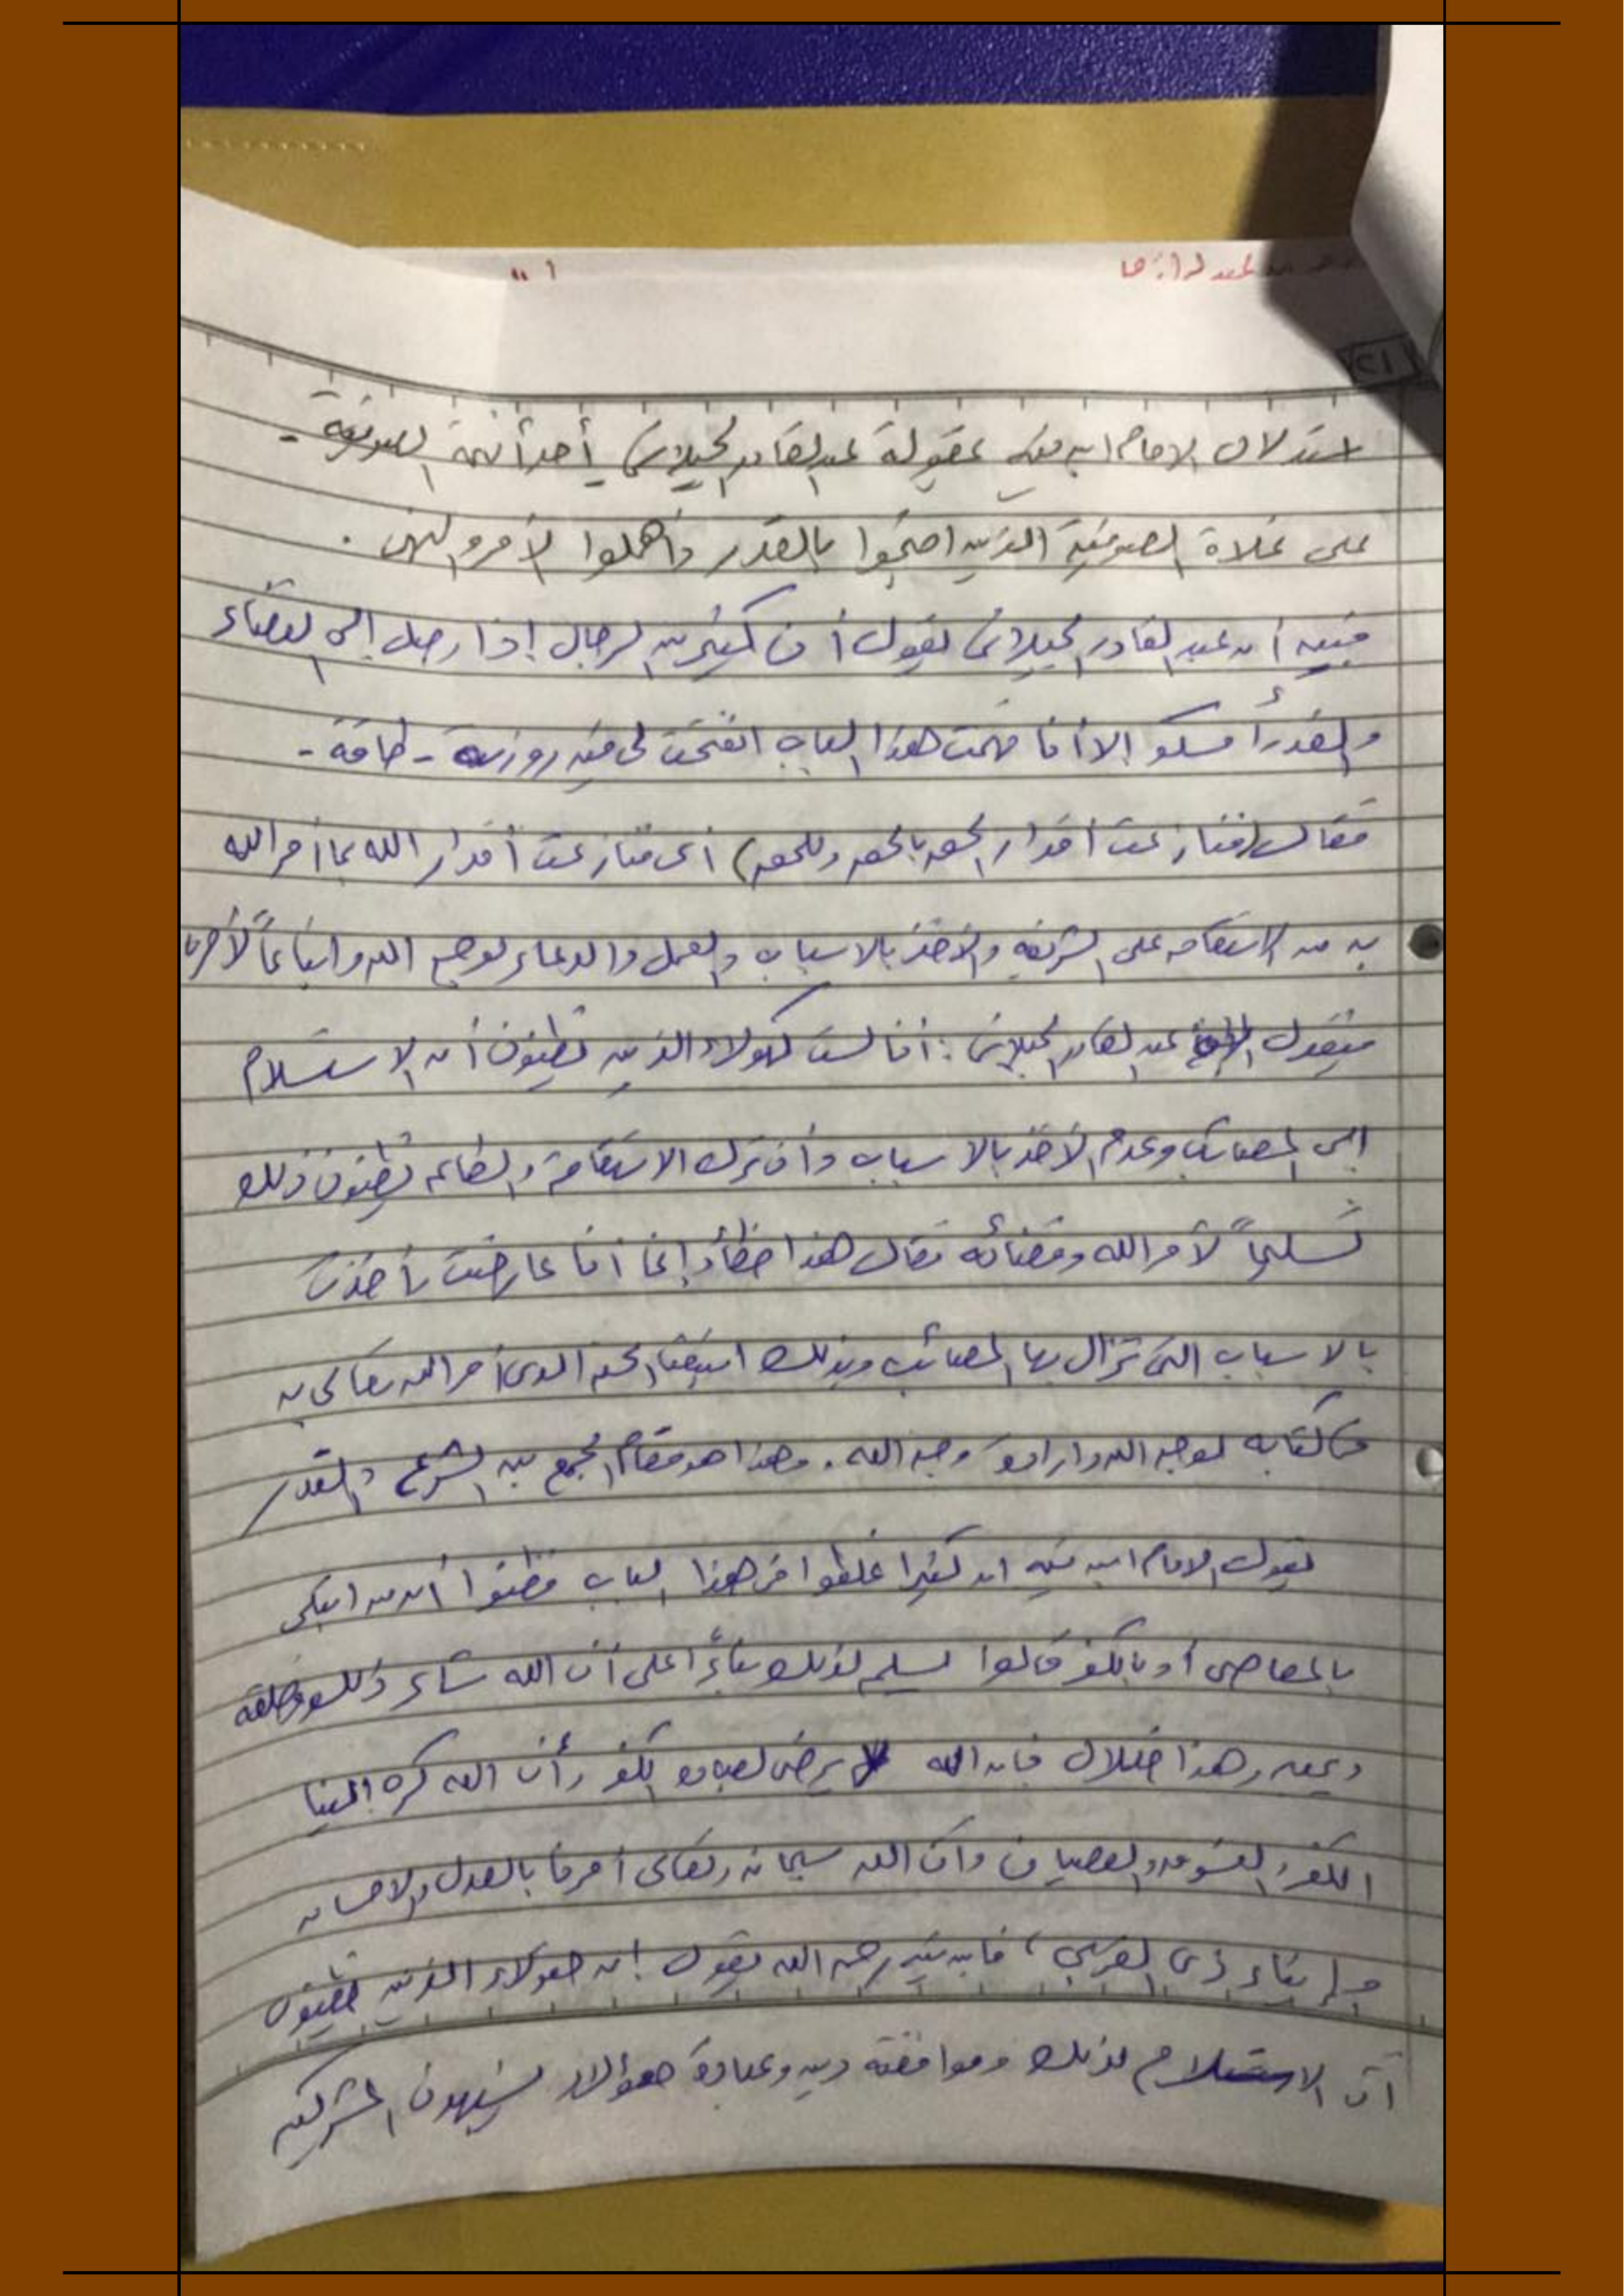 استدلال الامام ابن تيمية بمقولة عبد القادر الجيلانى أحد أئمة الصوفية -
على غلاة الصوفية الذين احتجوا بالقدر وأهملوا الأمر والنهى .
فبين أن عبد القادر الجيلانى يقول أن كثير من الرجال إذا وصل إلى القضاء
والقدر أمسكو إلا أنا فهمت هذا الباب انفتحت لى فيه روزنة - طاقة -
فقال (فنازعت أقدار الحق بالحق وللحق) أى فنازعت أقدار الله بما أمر الله
به من الاستقامه على الشريعه والأخذ بالاسباب والعمل والدعاء لوجه الله واتباعاً لأمرنا
فيقول عبد القادر الجيلانى : أنا لست كهولاء الذين يظنون أن الاستسلام
الى المصائب وعدم الأخذ بالاسباب وأن ترك الاستقامة والطاعه يظنون ذلك
تسليماً لأمر الله وقضائه فقال هذا خطأ وإنما أنا عارضت بأخذى
بالاسباب التى تزال بها المصائب وبذلك الحق الذى أمر الله تعالى به
لوجه الله وارادة وجه الله . وهذا هو مقام الجمع بين الشرع والقدر
يقول الامام ابن تيميه ان كثيرا غلطوا فى هذا الباب فظنوا أن من ابتلى
بالمعاصى أو بالكفر قالوا نسلم لذلك بناءً على أن الله شاء ذلك وخلقه
وهذا ضلال فان الله لا يرضى لعباده الكفر وأن الله كره الينا
الكفر والفسوق والعصيان وأن الله سبحانه وتعالى أمرنا بالعدل والاحسان
وإيتاء ذى القربى ، فابن تيميه رحمه الله يقول إن هولاء الذين يظنون
أن الاستسلام لذلك وموافقته دين وعبادة هؤلاء يشبهون المشركين